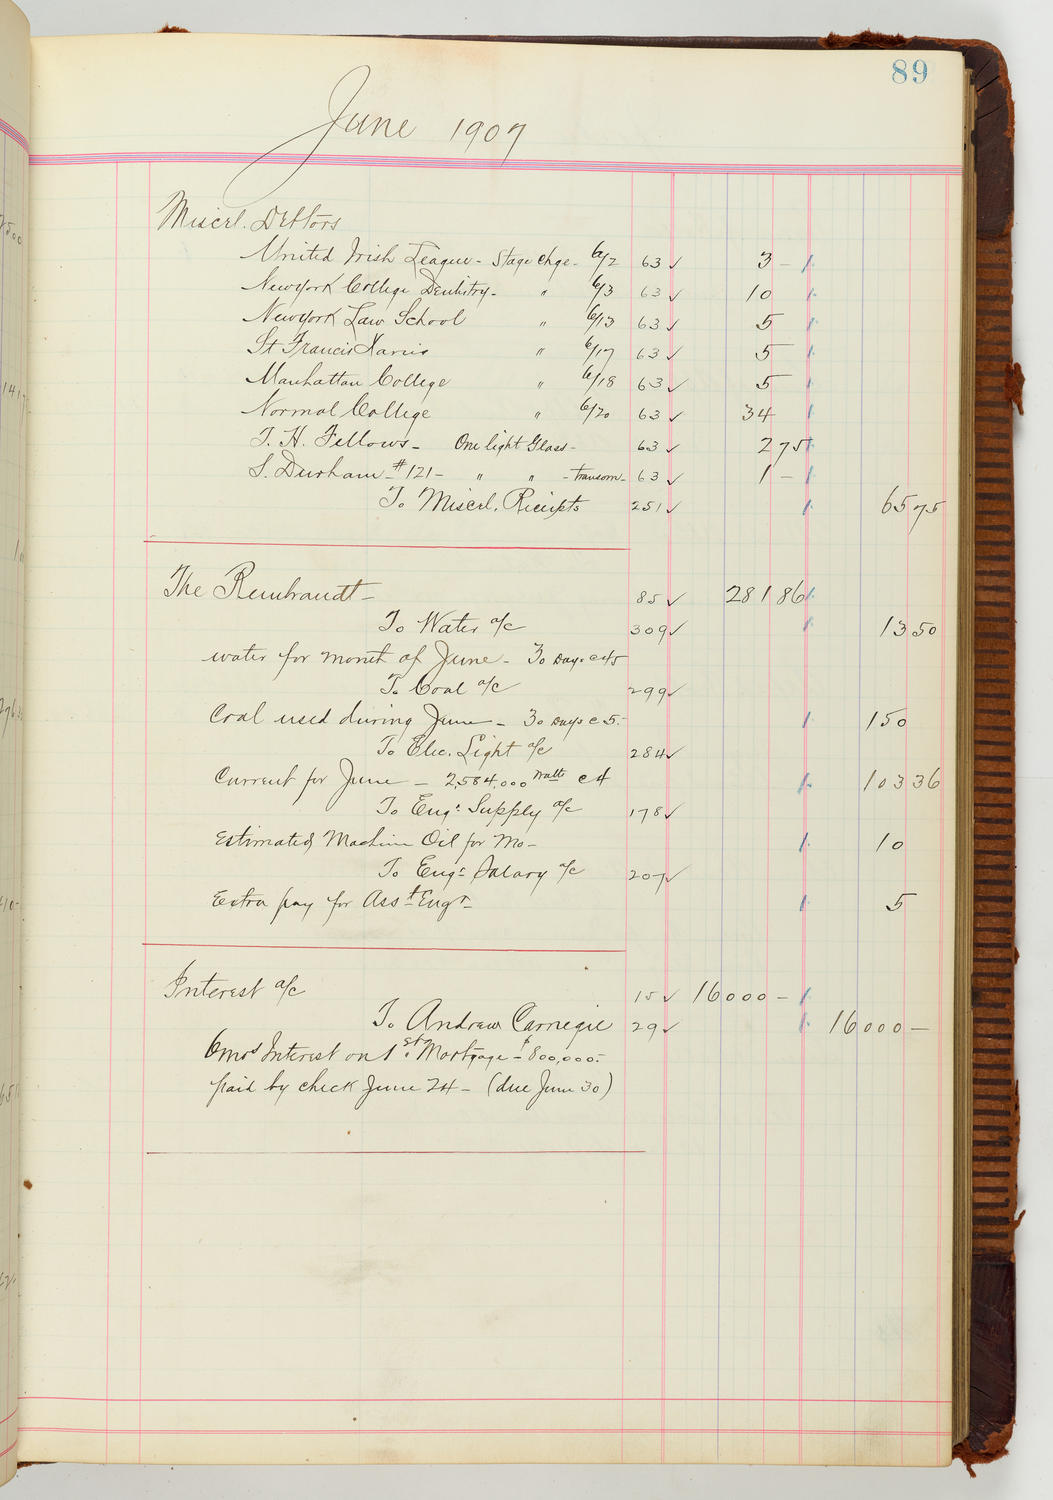 89
June 1907
Miscel. Debtors
United Irish League - Stage chge - 6/2 63 ✓ 3 -
New york College Dentistry - " 6/3 63 ✓ 10
New york Law School " 6/13 63 ✓ 5
St Francis Xavier " 6/17 63 ✓ 5
Manhattan College " 6/18 63 ✓ 5
Normal College " 6/20 63 ✓ 34
T. H. Fellows - One light Glass - 63 ✓ 2 75
S. Durham - # 121 - " " - transom - 63 ✓ 1 -
To Miscel. Receipts 251 ✓ 65 75
The Rembrandt - 85 ✓ 281 86
To Water a/c 309 ✓ 13 50
water for month of June - 30 Days @ 45
To Coal a/c 299 ✓
Coal used during June - 30 Days @ 5.- 150
To Elec. Light a/c 284 ✓
Current for June - 2,584,000 Watts @ 4 103 36
To Engr Supply a/c 178 ✓
Estimated Machine Oil for Mo - 10
To Engr Salary a/c 207 ✓
Extra pay for Asst Engr - 5
Interest a/c 15 ✓ 16000 -
To Andrew Carnegie 29 ✓ 16000 -
6 mos Interest on 1st Mortgage - $800,000.-
paid by check June 24 - (due June 30)